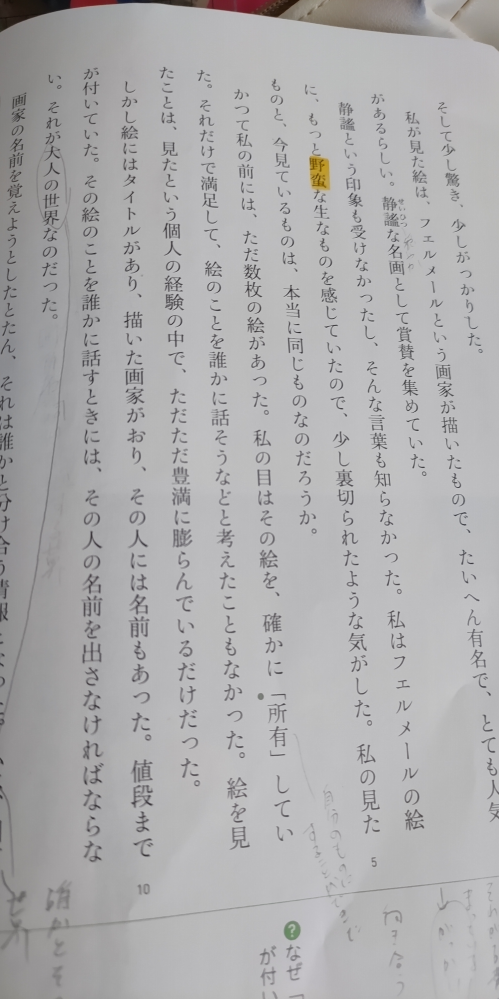 そして少し驚き、少しがっかりした。
私が見た絵は、フェルメールという画家が描いたもので、たいへん有名で、とても人気
があるらしい。静謐な名画として賞賛を集めていた。
せいひつ
静謐という印象も受けなかったし、そんな言葉も知らなかった。私はフェルメールの絵
に、もっと野蛮な生なものを感じていたので、少し裏切られたような気がした。私の見た
ものと、今見ているものは、本当に同じものなのだろうか。
かつて私の前には、ただ数枚の絵があった。私の目はその絵を、確かに「所有」してい
た。それだけで満足して、絵のことを誰かに話そうなどと考えたこともなかった。絵を見
たことは、見たという個人の経験の中で、ただただ豊満に膨らんでいるだけだった。
しかし絵にはタイトルがあり、描いた画家がおり、その人には名前もあった。値段まで
が付いていた。その絵のことを誰かに話すときには、その人の名前を出さなければならな
い。それが大人の世界なのだった。
画家の名前を覚えようとしたとたん、それは誰かと分け合う情報
5
10
自分のものに
することができ
?なぜ「
が付い
誰かとそ
世界